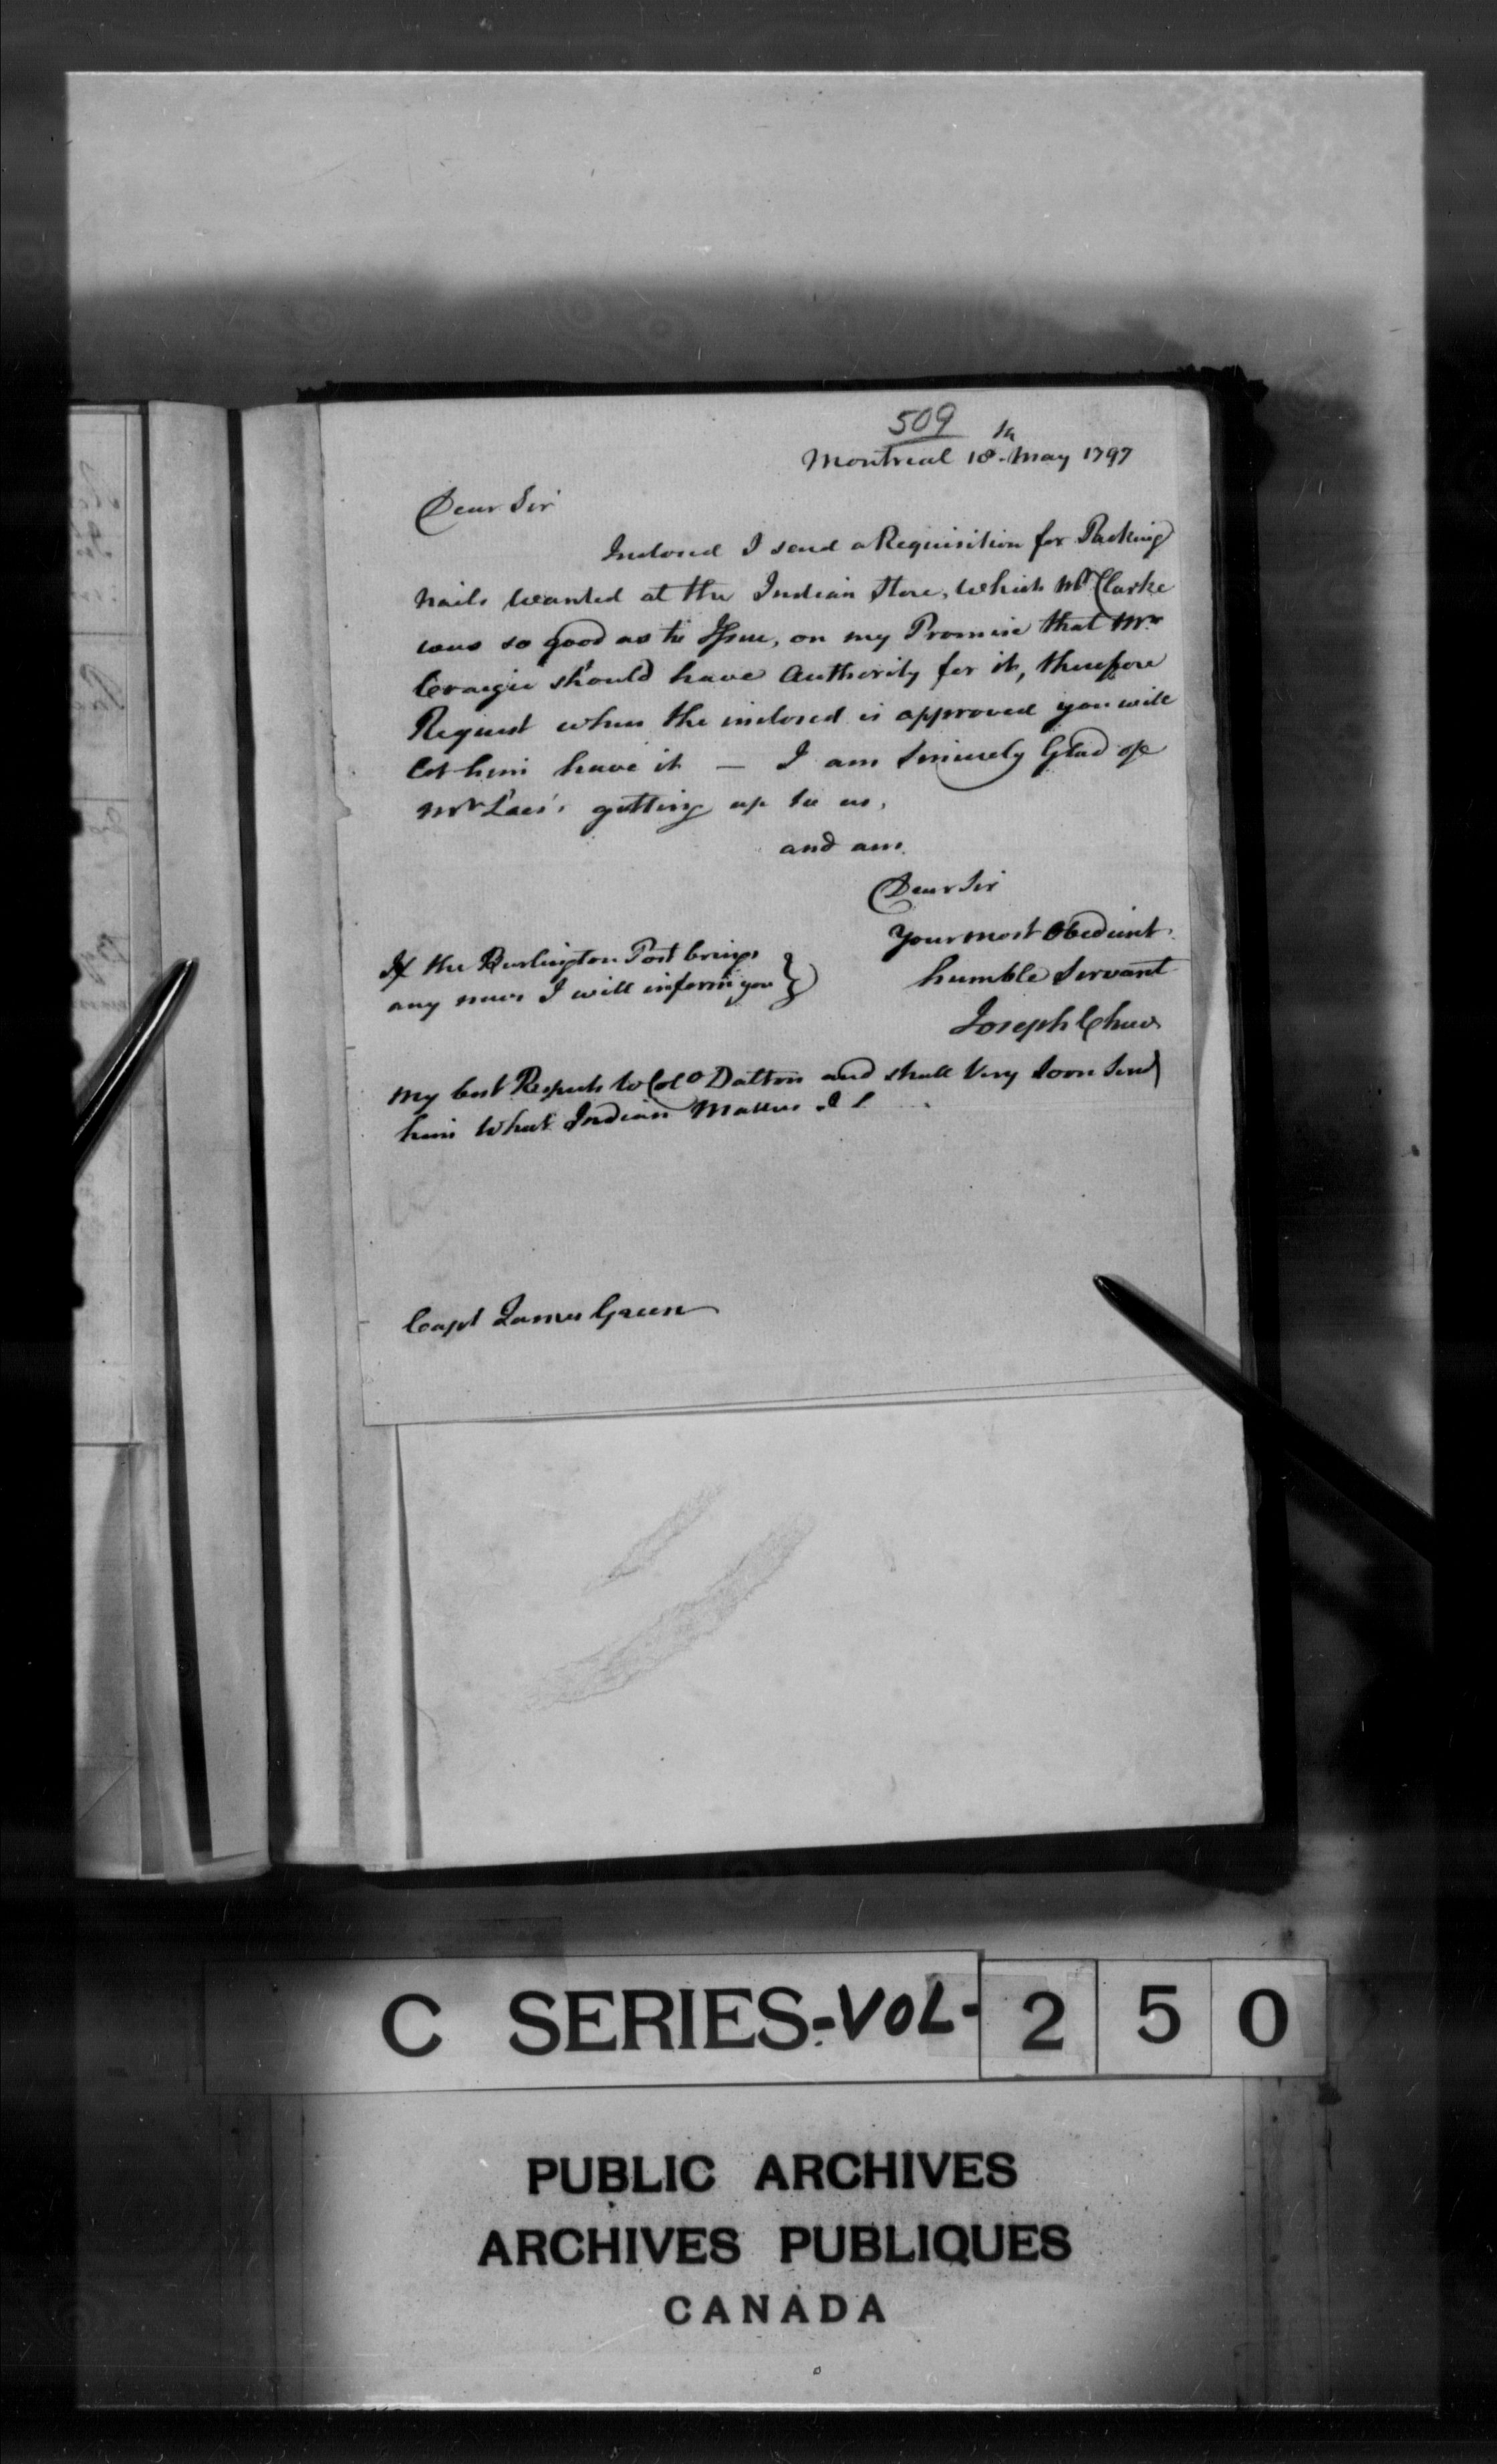 509
Montreal 18th May 1797
Dear Sir
Inclosed I send a Requisition for Packing
Nails wanted at the Indian Store, which Mr Clarke
was so good as to Issue, on my Promise that Mr
Craigie should have Authority for it, therefore
Request when the inclosed is approved you will
let him have it — I am Sincerely Glad of
Mr getting up to us,
and am
Dear Sir
Your most Obedient
humble Servant
Joseph Chew
If the Burlington Post brings
any news I will inform you
My best Respects to Colo Dalton and shall Very Soon Send
him what Indian Matters I
Capt James Green
C SERIES-VOL-250
PUBLIC ARCHIVES
ARCHIVES PUBLIQUES
CANADA